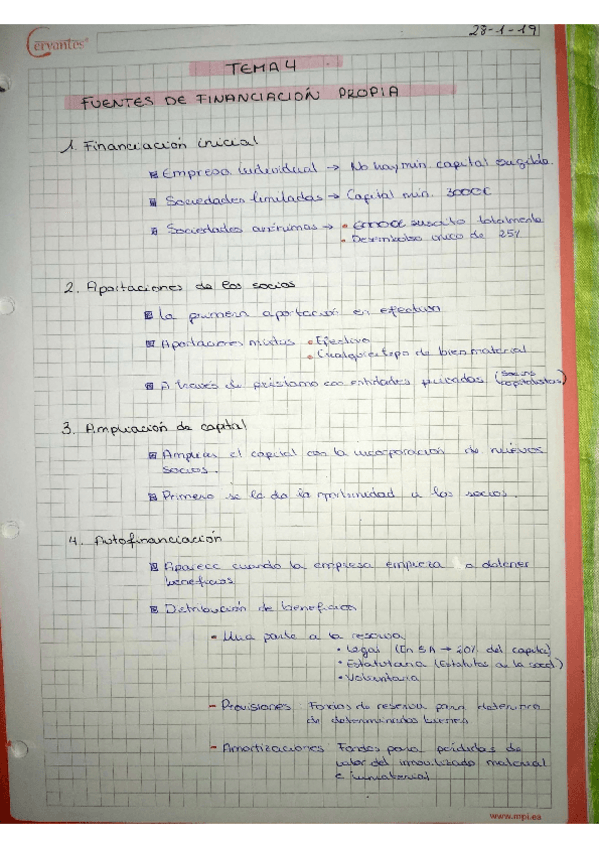 Cervantes
28-1-19
TEMA 4
FUENTES DE FINANCIACIÓN PROPIA
1. Financiación inicial
Empresa individual → No hay min. capital exigido.
Sociedades limitadas → Capital min. 3000€
Sociedades anónimas → • suscrito totalmente
• Desembolso único de 25%
2. Aportaciones de los socios
La primera aportación en efectivo
Aportaciones mixtas • Efectivo
• Cualquier tipo de bien material
A través de préstamo con entidades privadas (socios
capitalistas)
3. Ampliación de capital
Ampliar el capital con la incorporación de nuevos
socios.
Primero se le da la oportunidad a los socios.
4. Autofinanciación
Aparece cuando la empresa empieza a obtener
beneficios
Distribución de beneficios
- Una parte a la reserva
• Legal (En SA → 20% del capital)
• Estatutaria (Estatutos de la socd.)
• Voluntaria
- Provisiones: Fondos de reserva para
de determinados
- Amortizaciones: Fondos para pérdidas de
valor del inmovilizado material
e inmaterial
www.mpi.es